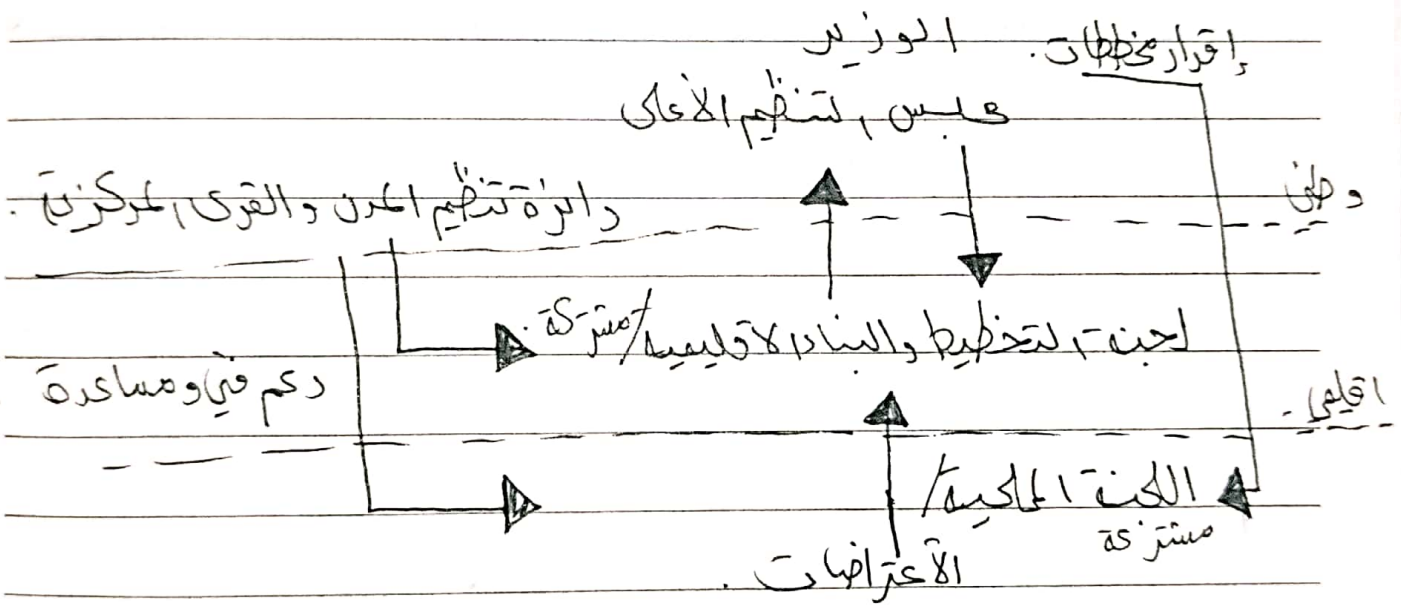 إقرار مخططات. الوزير
مجلس التنظيم الأعلى
وطني
دائرة تنظيم المدن والقرى المركزية.
لجنة التخطيط والبناء الاقليمية/مشتركة
دعم فني ومساعدة
اقليمي.
اللجنة المحلية/
مشتركة
الأعتراضات.